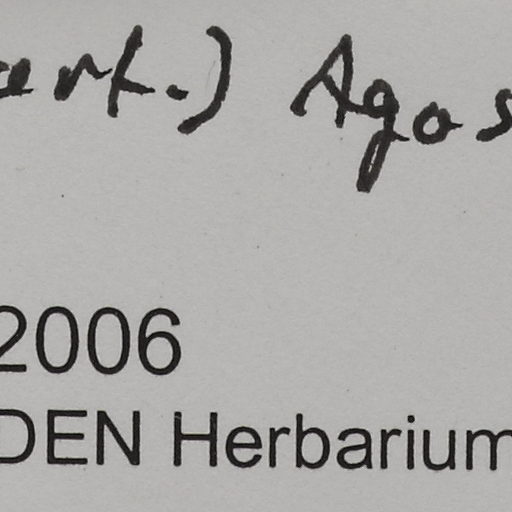 ert.) Agos
2006
DEN Herbarium